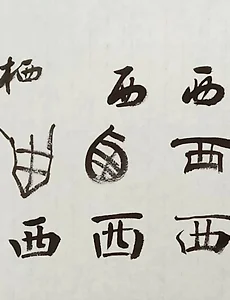 栖 西 西
西
西 西 西